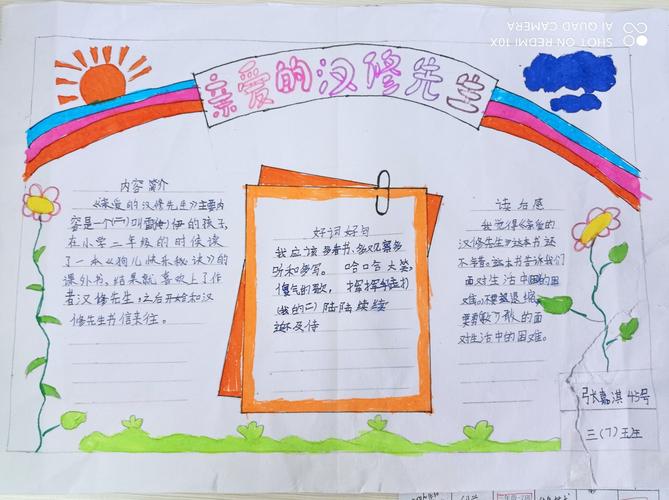 SHOT ON REDMI 10X
AI QUAD CAMERA
亲爱的汉修先生
内容简介
《亲爱的汉修先生》主要内
容是一个(一)叫雷(伊)伊的孩子,
在小学二年级的时候读
了一本《狗儿快乐秘诀》的
课外书。结果就喜欢上了作
者汉修先生,之后开始和汉
修先生书信来往。
好词好句
我应该多看书、多观察多
听和多写。 哈哈大笑,
傻气的歌, 挥挥
陆陆续续
迫不及待
读后感
我觉得《亲爱的
汉修先生》这本书还
不错。这本书告诉我们
面对生活中的困
难。不要退缩。
要勇敢的面
对生活中的困难。
张嘉淇 45号
三(7)班